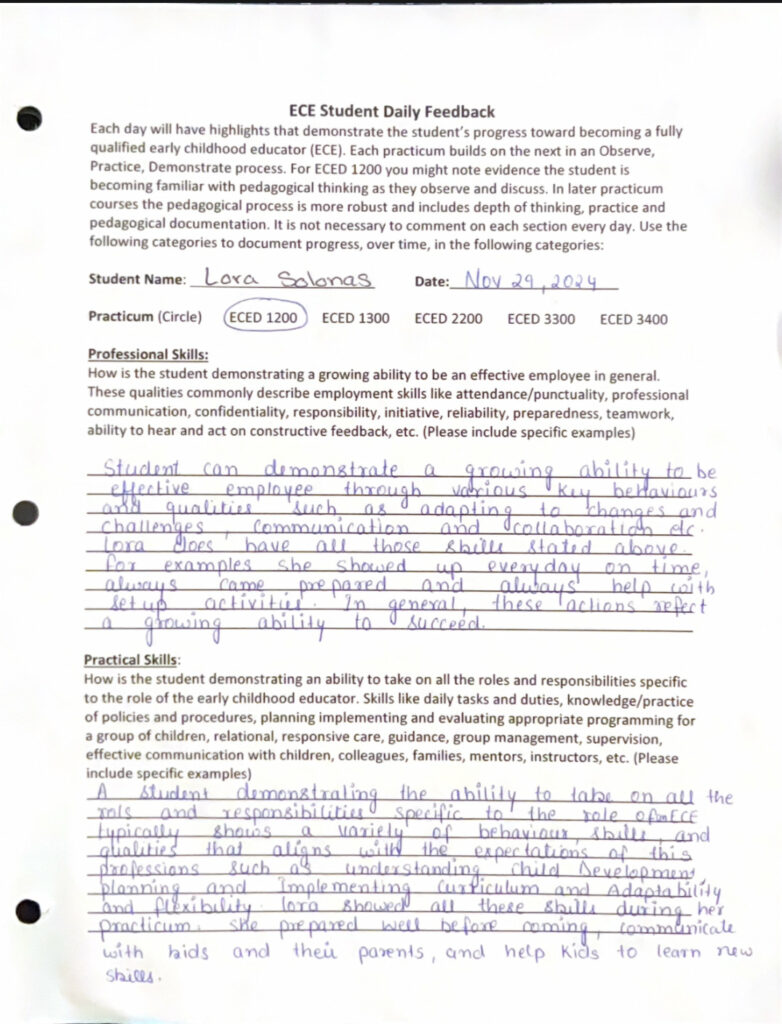 ECE Student Daily Feedback
Each day will have highlights that demonstrate the student's progress toward becoming a fully
qualified early childhood educator (ECE). Each practicum builds on the next in an Observe,
Practice, Demonstrate process. For ECED 1200 you might note evidence the student is
becoming familiar with pedagogical thinking as they observe and discuss. In later practicum
courses the pedagogical process is more robust and includes depth of thinking, practice and
pedagogical documentation. It is not necessary to comment on each section every day. Use the
following categories to document progress, over time, in the following categories:
Student Name: Lora Solonas Date: Nov 29, 2024
Practicum (Circle) ECED 1200 ECED 1300 ECED 2200 ECED 3300 ECED 3400
Professional Skills:
How is the student demonstrating a growing ability to be an effective employee in general.
These qualities commonly describe employment skills like attendance/punctuality, professional
communication, confidentiality, responsibility, initiative, reliability, preparedness, teamwork,
ability to hear and act on constructive feedback, etc. (Please include specific examples)
Student can demonstrate a growing ability to be
effective employee through various key behaviours
and qualities such as adapting to changes and
challenges, communication and collaboration etc.
Lora does have all those skills stated above.
for examples she showed up everyday on time,
always came prepared and always help with
set up activities. In general, these actions refect
a growing ability to succeed.
Practical Skills:
How is the student demonstrating an ability to take on all the roles and responsibilities specific
to the role of the early childhood educator. Skills like daily tasks and duties, knowledge/practice
of policies and procedures, planning implementing and evaluating appropriate programming for
a group of children, relational, responsive care, guidance, group management, supervision,
effective communication with children, colleagues, families, mentors, instructors, etc. (Please
include specific examples)
A student demonstrating the ability to take on all the
rols and responsibilities specific to the role of an ECE
typically shows a variety of behaviour, skills, and
qualities that aligns with the expectations of this
professions such as understanding Child Development,
planning and Implementing Curriculum and Adaptability
and flexibility. Lora showed all these skills during her
practicum. she prepared well before coming, communicate
with kids and their parents, and help kids to learn new
skills.